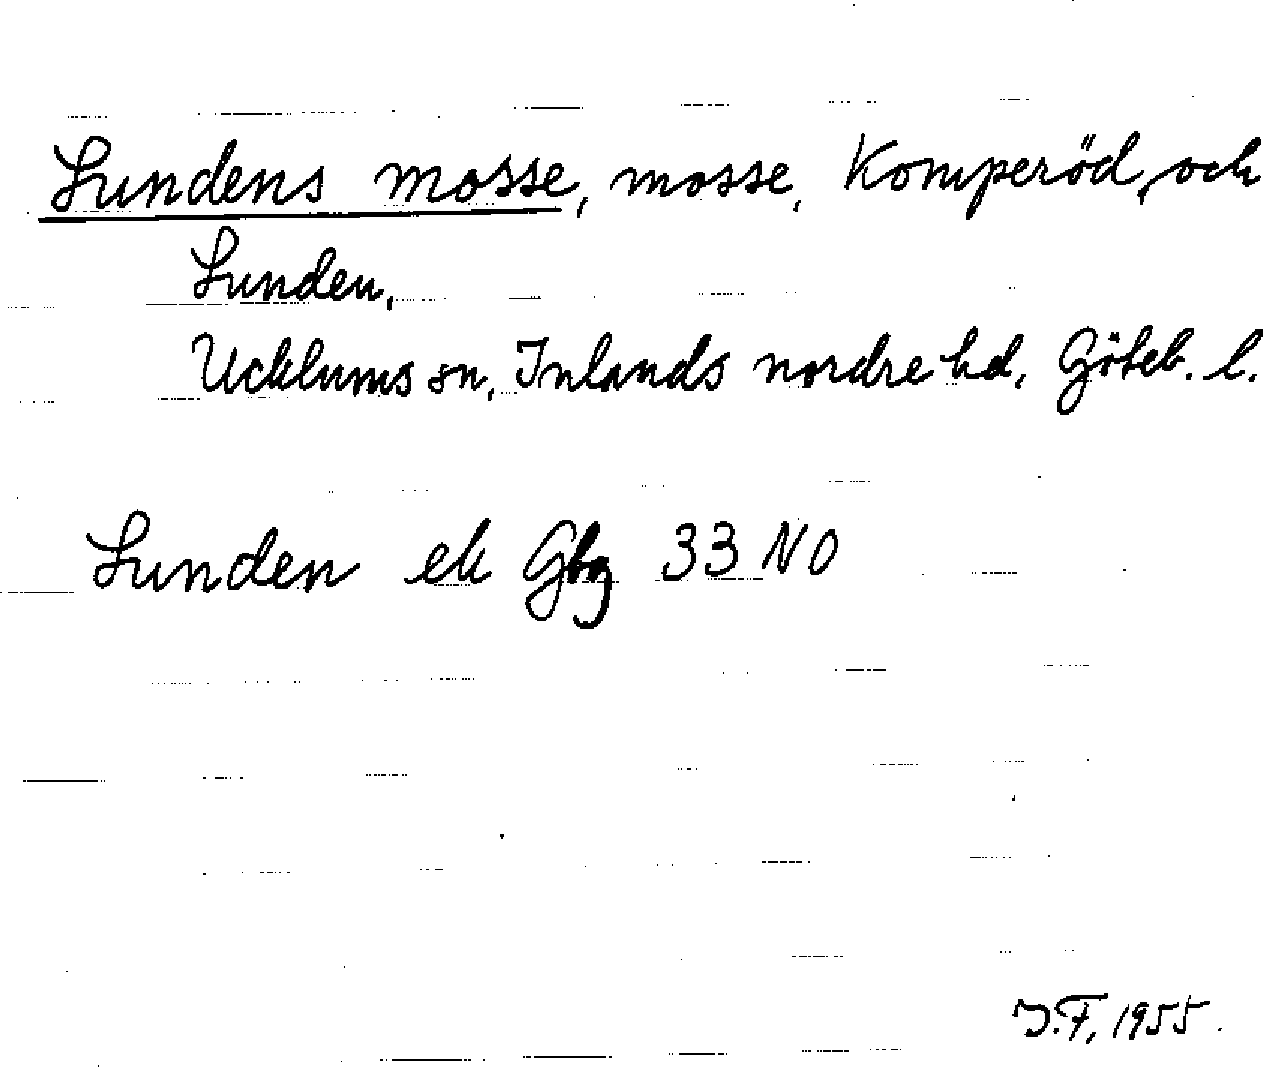 Lundens mosse, mosse, Komperöd, och
Lunden,
Ucklums sn, Inlands nordre hd, Göteb. l.
Lunden ek Gbg 33 NO
J.F, 1955.